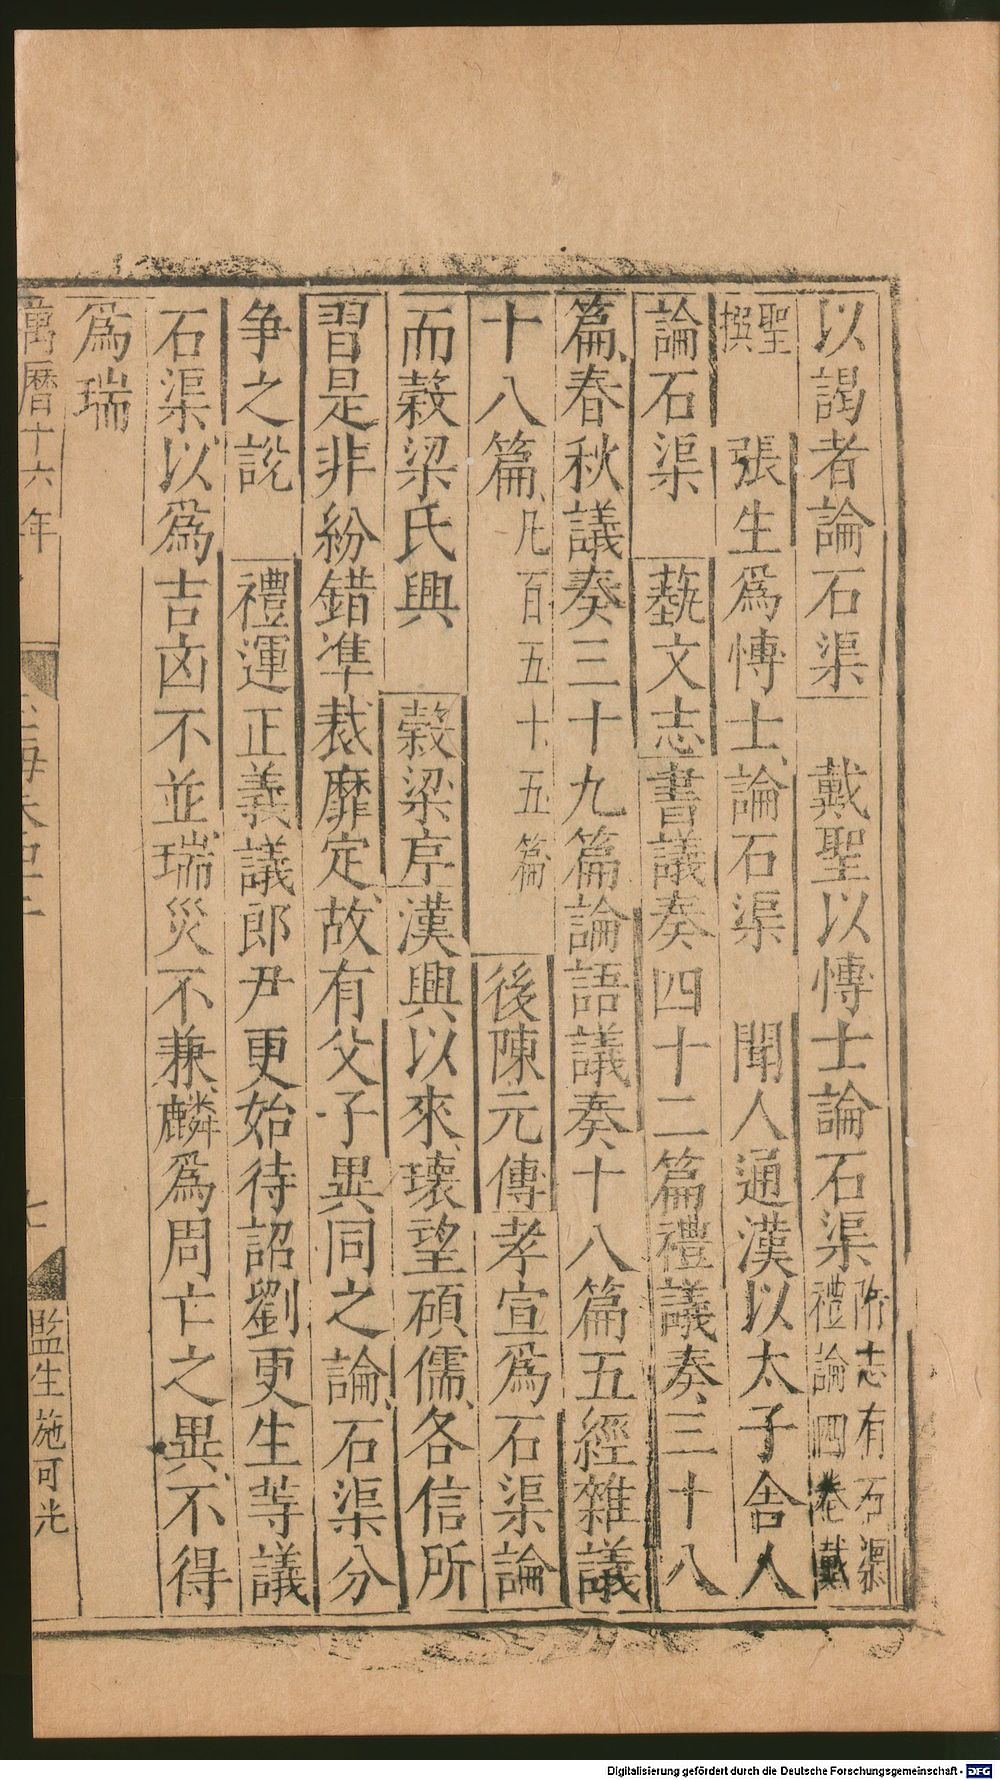 以謁者論石渠　戴聖以愽士論石渠附志有石渠禮論四卷戴
聖撰　張生爲愽士論石渠　聞人通漢以太子舍人
論石渠　蓺文志書議奏四十二篇禮議奏三十八
篇春秋議奏三十九篇論語議奏十八篇五經雜議
十八篇凡百五十五篇　後陳元傳孝宣爲石渠論
而穀梁氏興　穀梁序漢興以來瓌望碩儒各信所
習是非紛錯準裁靡定故有父子異同之論石渠分
争之說　禮運正義議郎尹更始待詔劉更生等議
石渠以爲吉凶不並瑞災不兼麟爲周亡之異不得
爲瑞
萬曆十六年　七　監生施可光
Digitalisierung gefördert durch die Deutsche Forschungsgemeinschaft - DFG